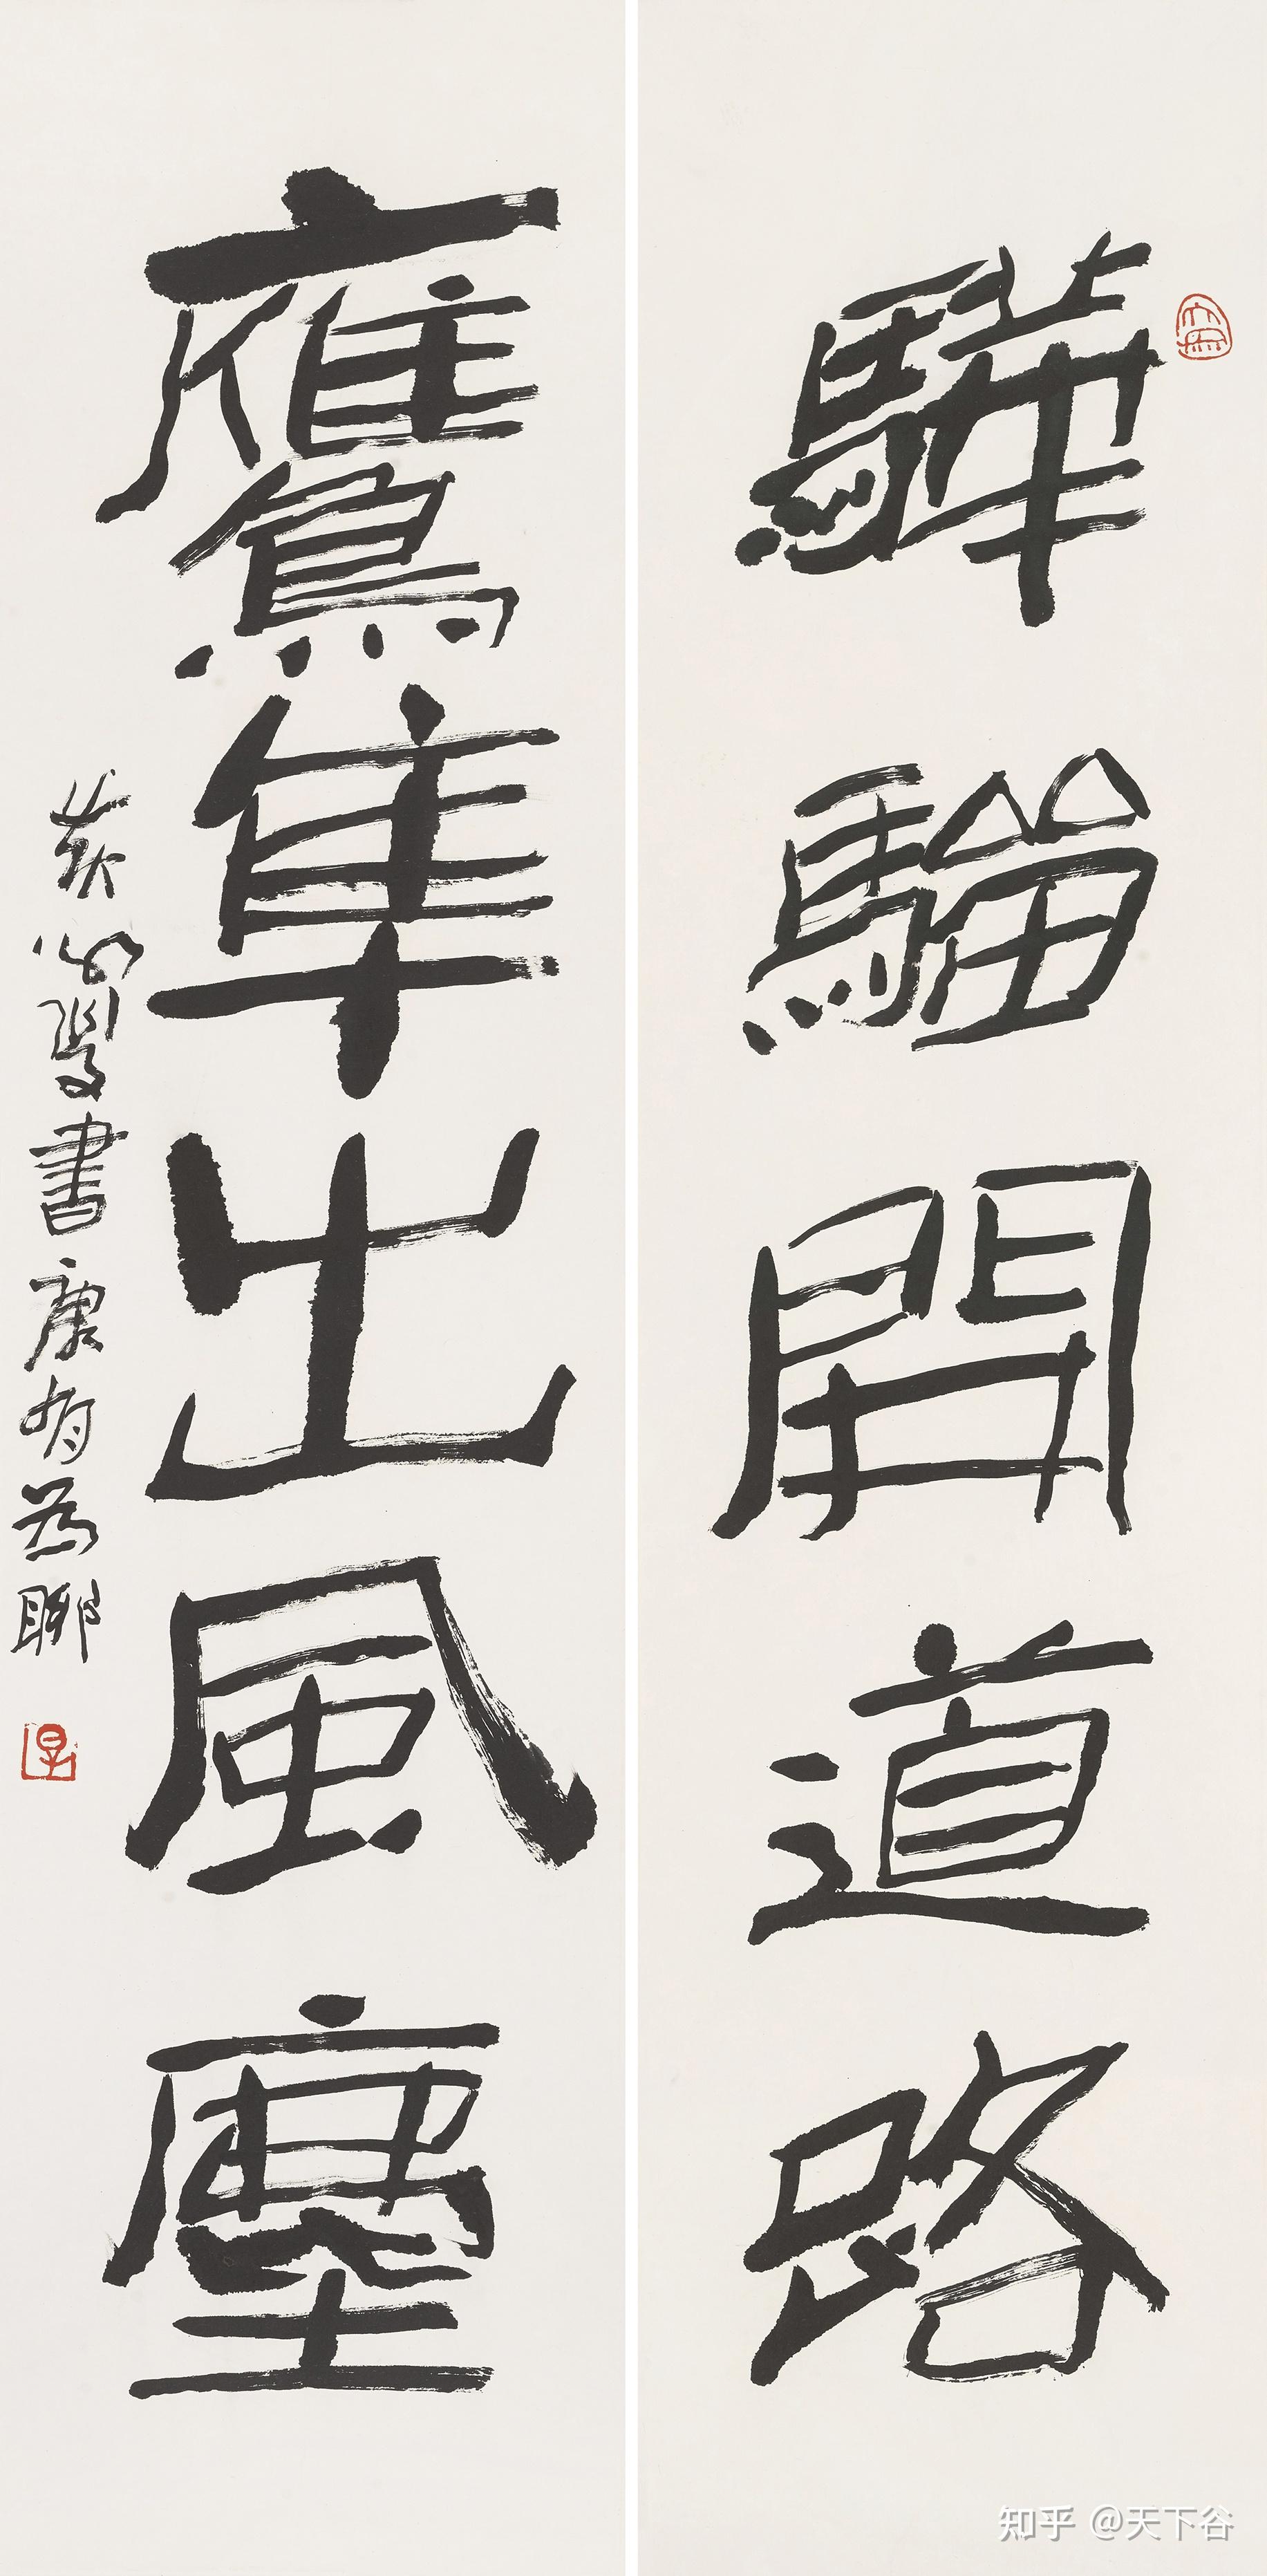 驊騮開道路
鷹隼出風塵
書康有為聯
知乎 @天下谷